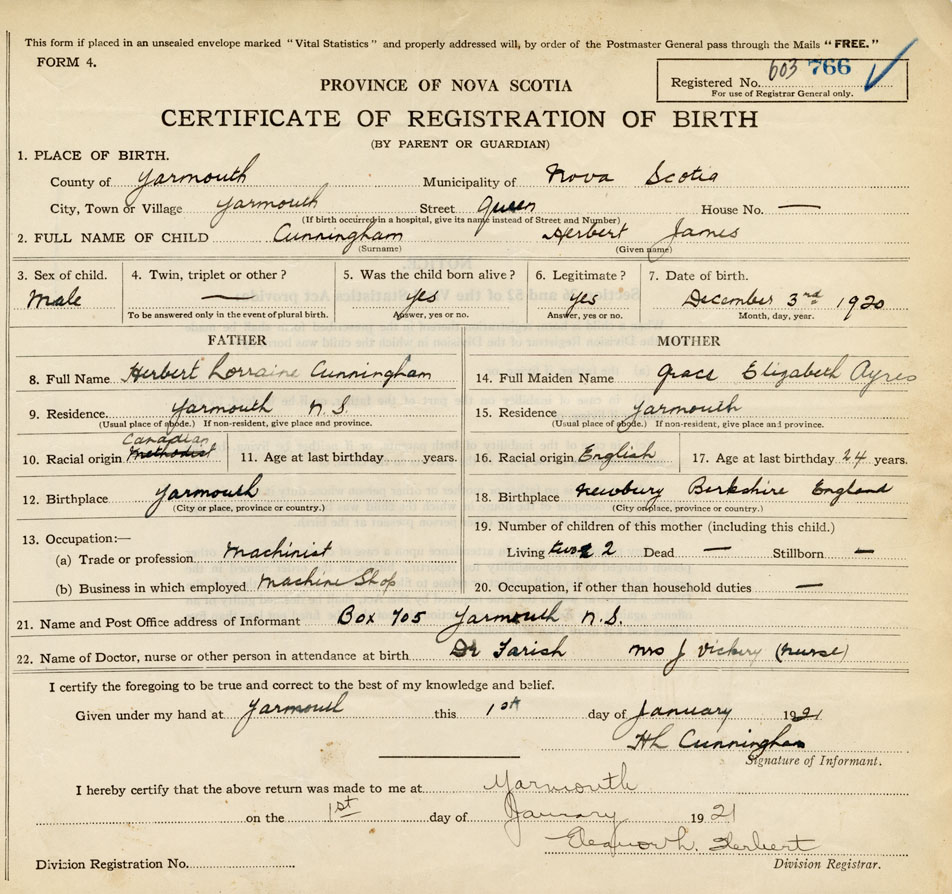 This form if placed in an unsealed envelope marked "Vital Statistics" and properly addressed will, by order of the Postmaster General pass through the Mails "FREE."
FORM 4.
603 766
Registered No.
For use of Registrar General only.
PROVINCE OF NOVA SCOTIA
CERTIFICATE OF REGISTRATION OF BIRTH
(BY PARENT OR GUARDIAN)
1. PLACE OF BIRTH.
County of Yarmouth Municipality of Nova Scotia
City, Town or Village Yarmouth Street Queen House No. —
(If birth occurred in a hospital, give its name instead of Street and Number)
2. FULL NAME OF CHILD Cunningham Herbert James
(Surname) (Given name)
3. Sex of child. 4. Twin, triplet or other? 5. Was the child born alive? 6. Legitimate? 7. Date of birth.
Male — yes Yes December 3rd 1920
To be answered only in the event of plural birth. Answer, yes or no. Answer, yes or no. Month, day, year.
FATHER
8. Full Name Herbert Lorraine Cunningham
9. Residence. Yarmouth N.S.
(Usual place of abode.) If non-resident, give place and province.
Canadian
10. Racial origin Methodist 11. Age at last birthday years.
12. Birthplace Yarmouth
(City or place, province or country.)
13. Occupation:—
(a) Trade or profession Machinist
(b) Business in which employed Machine Shop
MOTHER
14. Full Maiden Name Grace Elizabeth Ayres
15. Residence Yarmouth
(Usual place of abode.) If non-resident, give place and province.
16. Racial origin English 17. Age at last birthday 24 years.
18. Birthplace Newbury Berkshire England
(City or place, province or country.)
19. Number of children of this mother (including this child.)
Living two 2 Dead — Stillborn —
20. Occupation, if other than household duties —
21. Name and Post Office address of Informant Box 705 Yarmouth N.S.
22. Name of Doctor, nurse or other person in attendance at birth Dr Farish Mrs J Vickery (nurse)
I certify the foregoing to be true and correct to the best of my knowledge and belief.
Given under my hand at Yarmouth this 1st day of January 1921
HL Cunningham
Signature of Informant.
I hereby certify that the above return was made to me at Yarmouth
on the 1st day of January 1921
Herbert
Division Registration No. Division Registrar.